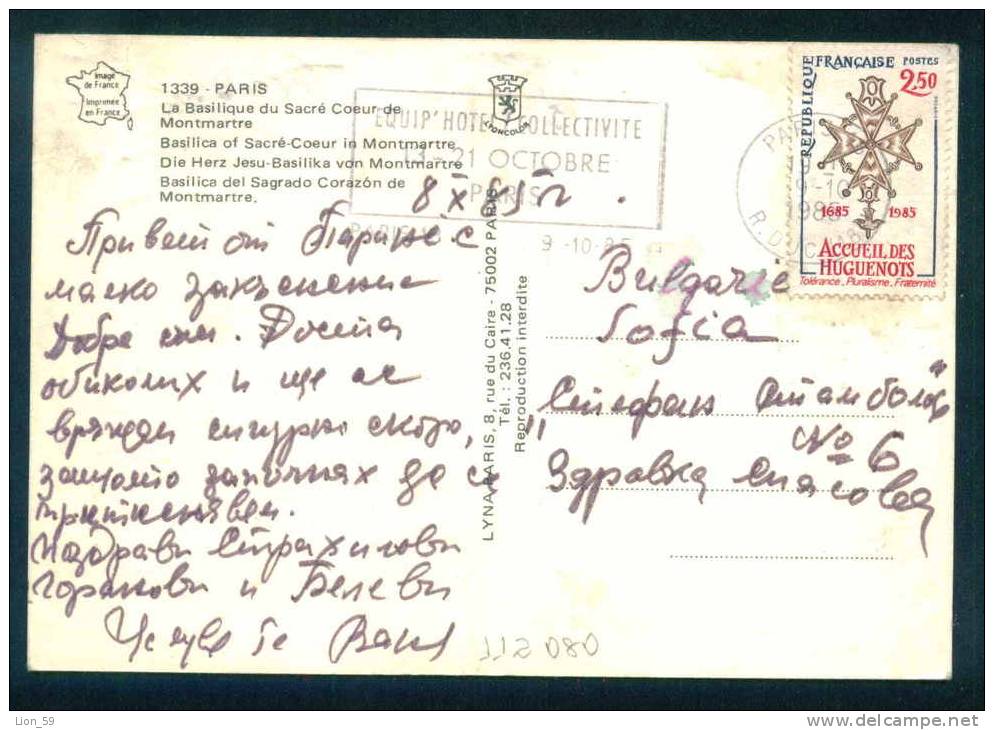 Image
de France
Imprimée
en France
1339 - PARIS
La Basilique du Sacré Coeur de
Montmartre
Basilica of Sacré-Coeur in Montmartre
Die Herz Jesu-Basilika von Montmartre
Basilica del Sagrado Corazón de
Montmartre.
LYONCOLOR
EQUIP'HOTEL COLLECTIVITE
21 OCTOBRE
PARIS
9-10-85
PARIS
R. DU
RÉPUBLIQUE FRANÇAISE POSTES
2,50
1685 1985
ACCUEIL DES
HUGUENOTS
Tolérance, Pluralisme, Fraternité
8 X 85 г.
Привет от Париж с
малко закъснение
Добре съм. Доста
обиколих и ще се
върна сигурно скоро,
защото започнах да се
притеснявам.
Поздрави Страхилови
и Белеви
Целува те Ваня
LYNA-PARIS, 8, rue du Caire - 75002 PARIS
Tél. : 236.41.28
Reproduction interdite
Bulgarie
Sofia
"Стефан Стамболов"
№ 6
Здравка Спасова
112080
Lion_59
http://www.delcampe.net